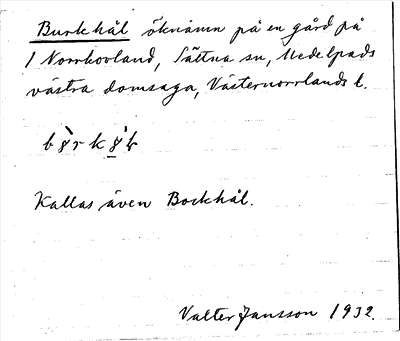 Burkhål öknamn på en gård på
1 Norrhovland, Sättna sn, Medelpads
västra domsaga, Västernorrlands l.
Kallas även Bockhål.
Valter Jansson 1932.